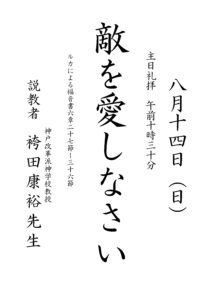 八月十四日（日）
主日礼拝　午前十時三十分
敵を愛しなさい
ルカによる福音書六章二十七節―三十六節
神戸改革派神学校教授
説教者　袴田康裕先生